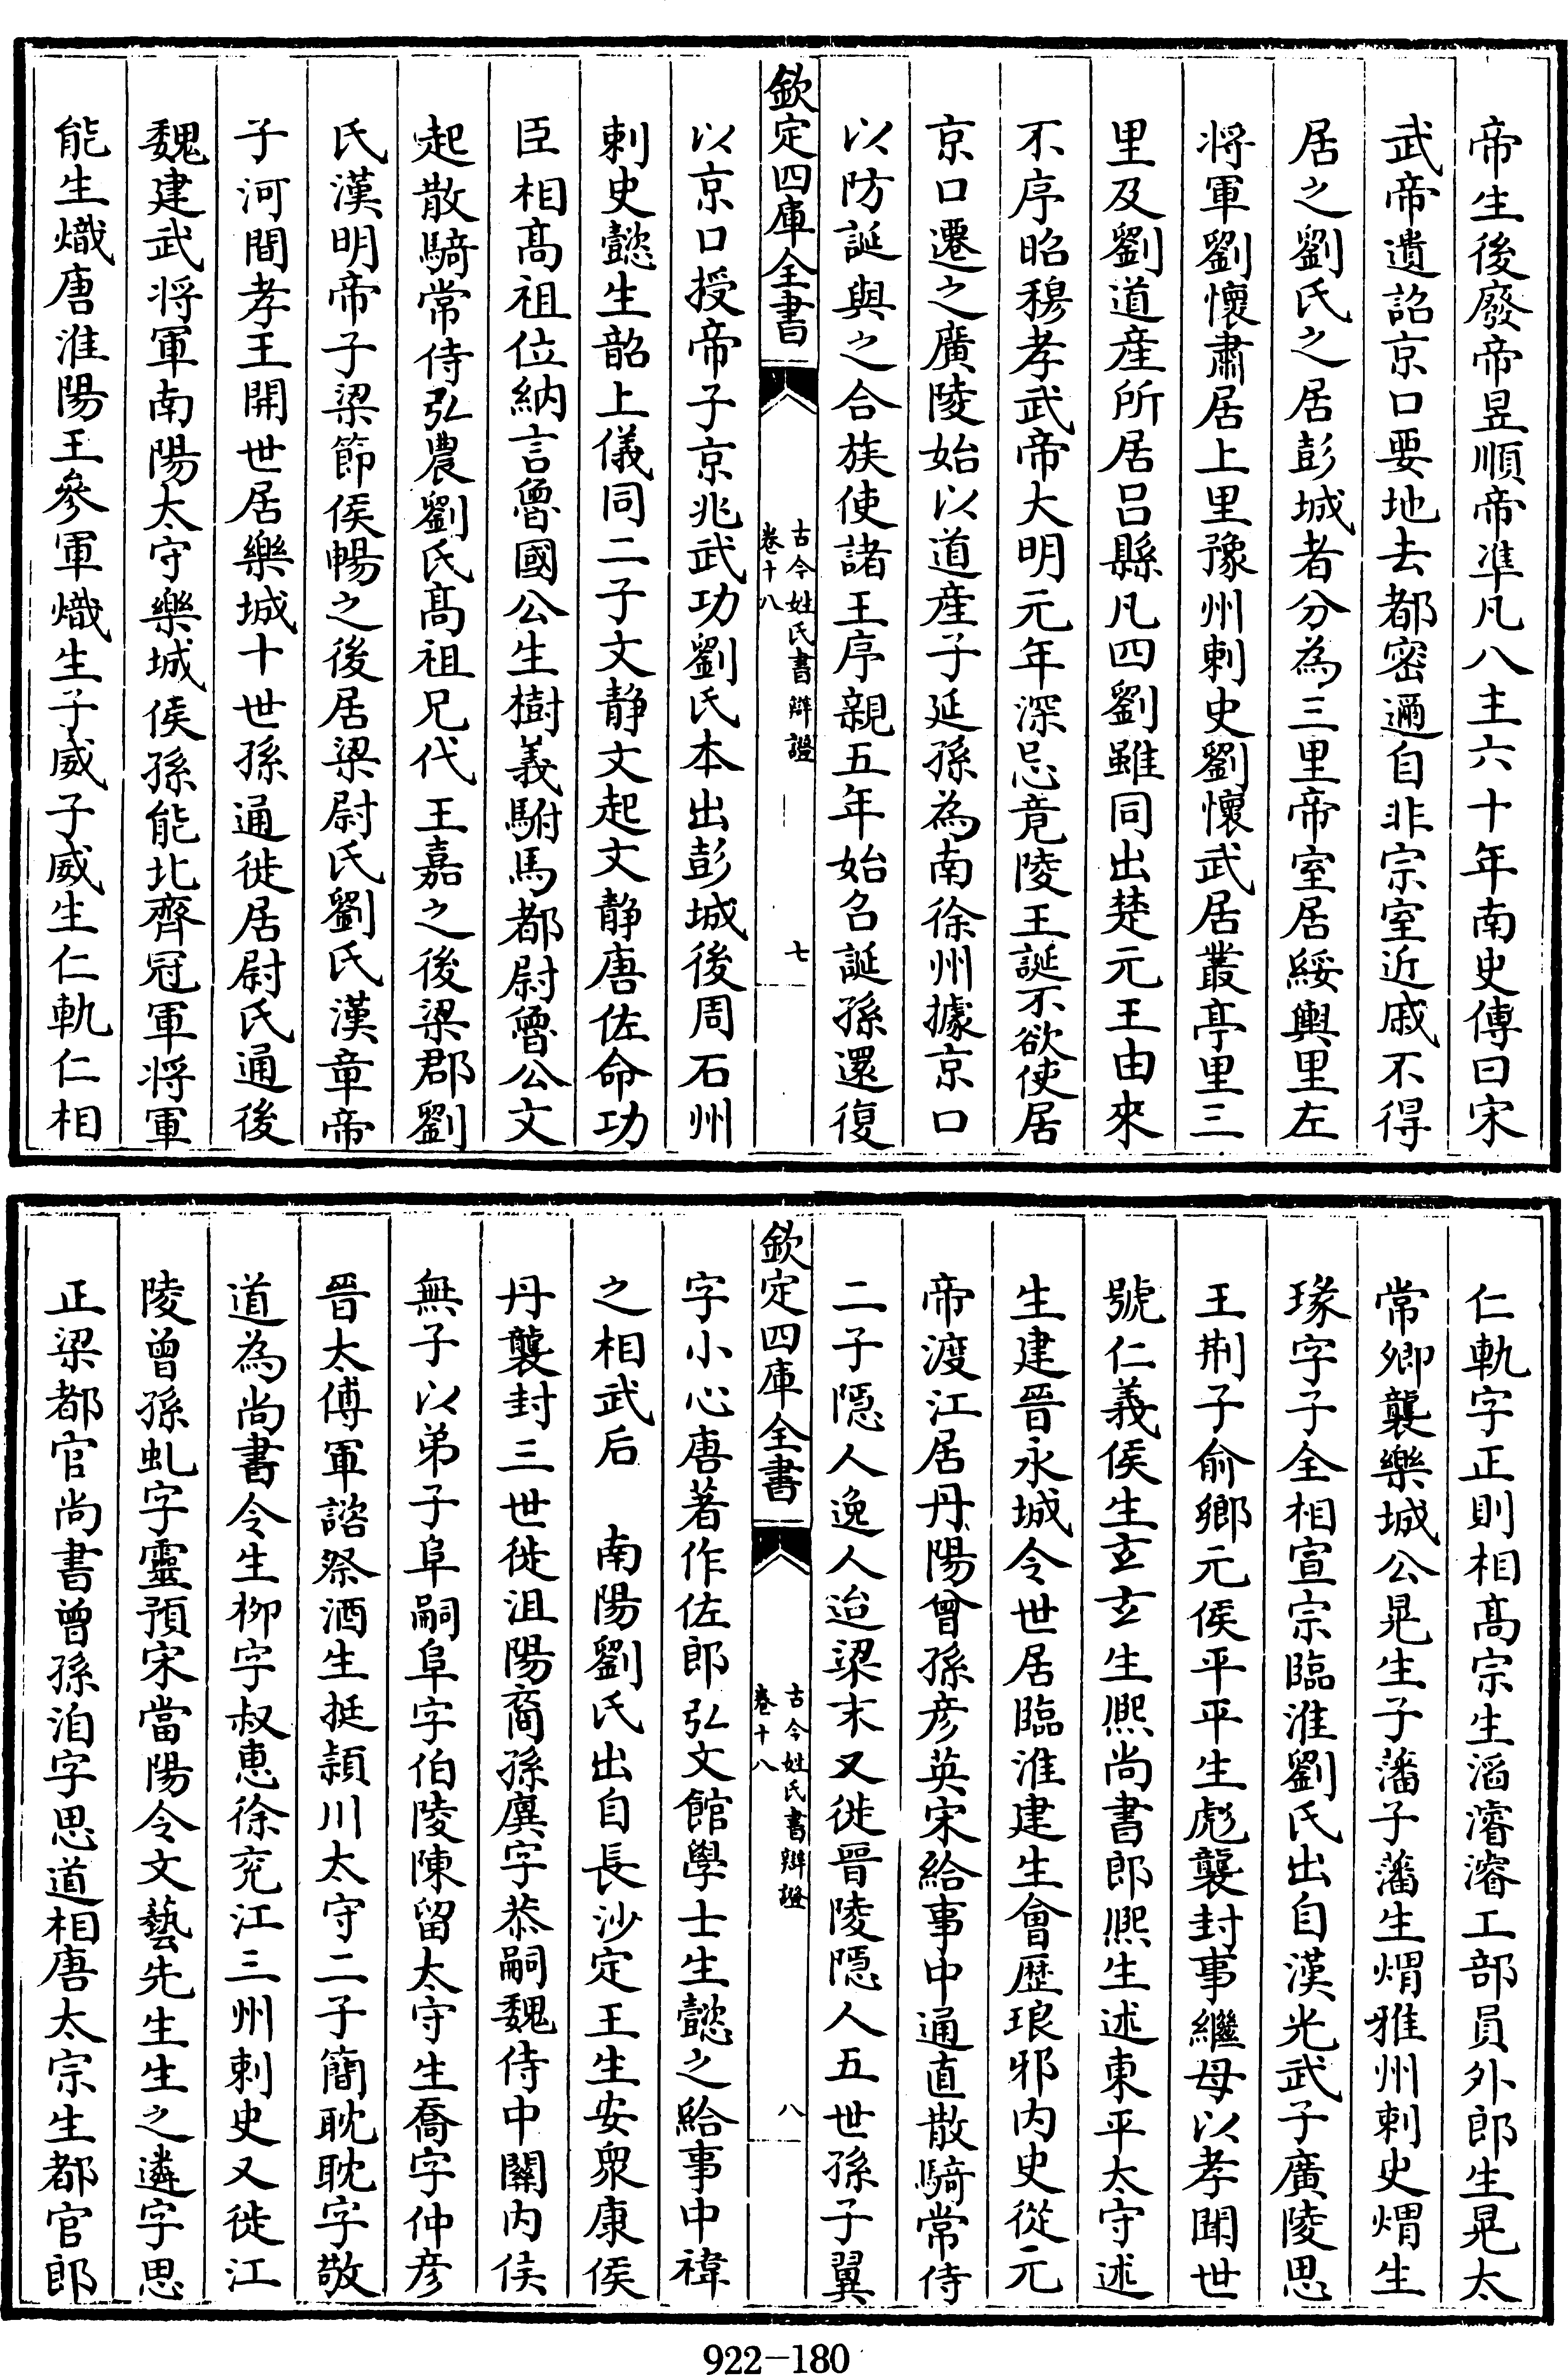 帝生後廢帝昱順帝凖凡八主六十年南史傳曰宋
武帝遺詔京口要地去都密邇自非宗室近戚不得
居之劉氏之居彭城者分為三里帝室居綏輿里左
將軍劉懷肅居上里豫州刺史劉懷武居叢亭里三
里及劉道産所居吕縣凡四劉雖同出楚元王由來
不序昭穆孝武帝大明元年深忌竟陵王誕不欲使居
京口遷之廣陵始以道産子延孫為南徐州據京口
以防誕與之合族使諸王序親五年始召誕孫還復
欽定四庫全書
古今姓氏書辯證
卷十八
七
以京口授帝子京兆武功劉氏本出彭城後周石州
刺史懿生韶上儀同二子文静文起文静唐佐命功
臣相髙祖位納言魯國公生樹義駙馬都尉魯公文
起散騎常侍弘農劉氏髙祖兄代王嘉之後梁郡劉
氏漢明帝子梁節侯暢之後居梁尉氏劉氏漢章帝
子河間孝王開世居樂城十世孫通徙居尉氏通後
魏建武将軍南陽太守樂城侯孫能北齊冠軍将軍
能生熾唐淮陽王參軍熾生子威子威生仁軌仁相
仁軌字正則相髙宗生滔濬濬工部員外郎生晃太
常卿襲樂城公晃生子藩子藩生熠雅州刺史熠生
瑑字子全相宣宗臨淮劉氏出自漢光武子廣陵思
王荆子俞鄉元侯平平生彪襲封事繼母以孝聞世
號仁義侯生玄玄生熈尚書郎熈生述東平太守述
生建晉永城令世居臨淮建生會歴琅邪内史從元
帝渡江居丹陽曾孫彦英宋給事中通直散騎常侍
二子隠人逸人迨梁末又徙晉陵隠人五世孫子翼
欽定四庫全書
古今姓氏書辯證
卷十八
八
字小心唐著作佐郎弘文館學士生懿之給事中禕
之相武后　南陽劉氏出自長沙定王生安衆康侯
丹襲封三世徙沮陽裔孫廙字恭嗣魏侍中關内侯
無子以弟子阜嗣阜字伯陵陳留太守生喬字仲彦
晉太傅軍諮祭酒生挺潁川太守二子簡耽耽字敬
道為尚書令生柳字叔惠徐兖江三州刺史又徙江
陵曾孫虬字靈預宋當陽令文藝先生生之遴字思
正梁都官尚書曾孫洎字思道相唐太宗生都官郎
922-180